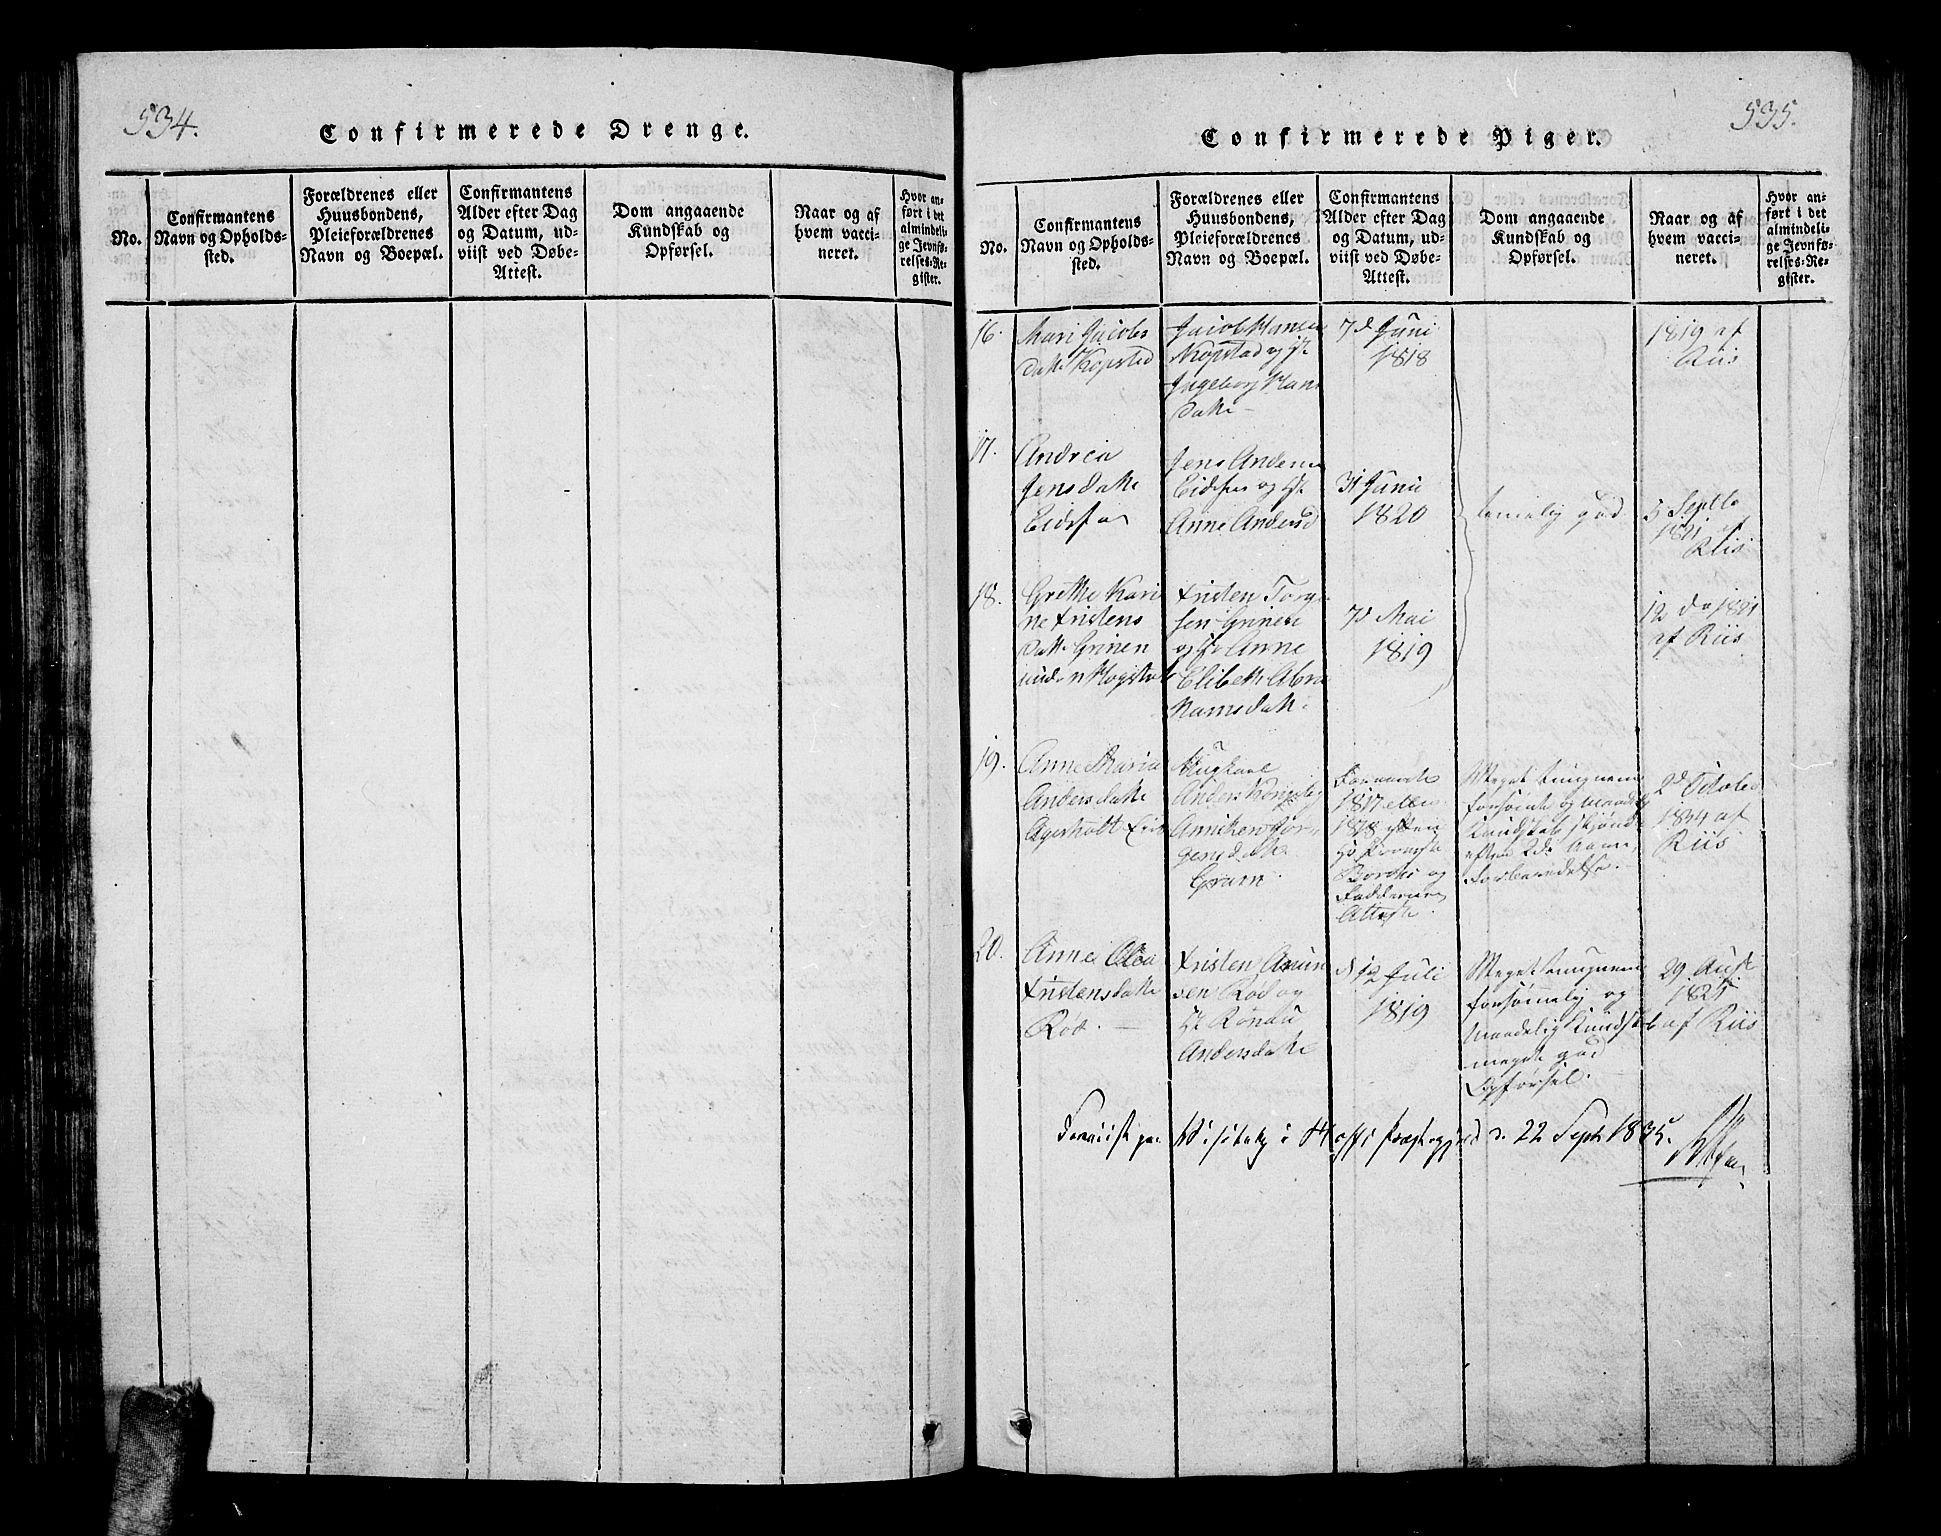 534.
Confirmerede Drenge.
No.
Confirmantens
Navn og Opholds-
sted.
Forældrenes eller
Huusbondens,
Pleieforældrenes
Navn og Boepæl.
Confirmantens
Alder efter Dag
og Datum, ud-
viist ved Døbe-
Attest.
Dom angaaende
Kundskab og
Opførsel.
Naar og af
hvem vacci-
neret.
Hvor an-
ført i det
almindeli-
ge Jevnfø-
relses-Re-
gister.
535.
Confirmerede Piger.
No.
Confirmantens
Navn og Opholds-
sted.
Forældrenes eller
Huusbondens,
Pleieforældrenes
Navn og Boepæl.
Confirmantens
Alder efter Dag
og Datum, ud-
viist ved Døbe-
Attest.
Dom angaaende
Kundskab og
Opførsel.
Naar og af
hvem vacci-
neret.
Hvor an-
ført i det
almindeli-
ge Jevnfø-
relses-Re-
gister.
16.
Mari Jacobs
datte Kopstad
Jacob Hansen
Kopstad og
Ingeborg Hans
datte
7d Juni
1818
1819 af
Riis
17.
Andrea
Jensdatte
Eidsfos
Jens Anderse
Eidsfos og
Anne Andersd
31 Junii
1820
temelig god
5 Septb
1821 af
Riis
18.
Grethe Kari
ne Cristens
datte Grinen
Cristen Torge
sen Grinen
og Anne
Elisbeth Abra
hamsdatt.
7d Mai
1819
12 do 1821
af Riis
19.
Anne Maria
Andersdatte
Agerholt
Anders Kongsteg
Anniken Jør-
gensdatte
Gram.
1817 eller
1818 efter
Hr Provst
Borchs og
Faddernes
Attest.
Meget
forsømt og maadelig
Kundskab skjøndt
efter 2de Aars
Forberedelse.
2d Octobr
1834 af
Riis
20.
Anne Olea
Cristensdatte
Röd.
Cristen Amun
sen Röd og
Rönau
Andersdatte
d 12 Juli
1819
Meget
forsømmelig og
maadelig Kundskab
meget god
Opførsel.
29 Aust
1821
af Riis
Foreviist paa Visitatz i Hoffs Præstegjeld d. 22 Septr 1835.